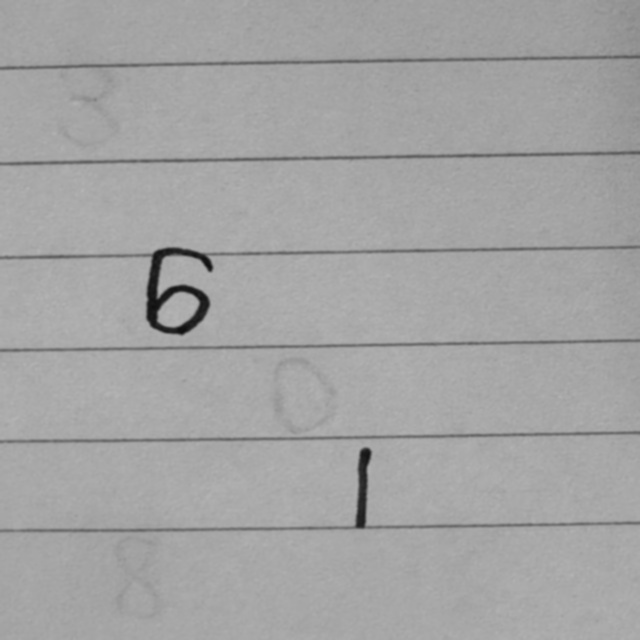 3
6
0
1
8